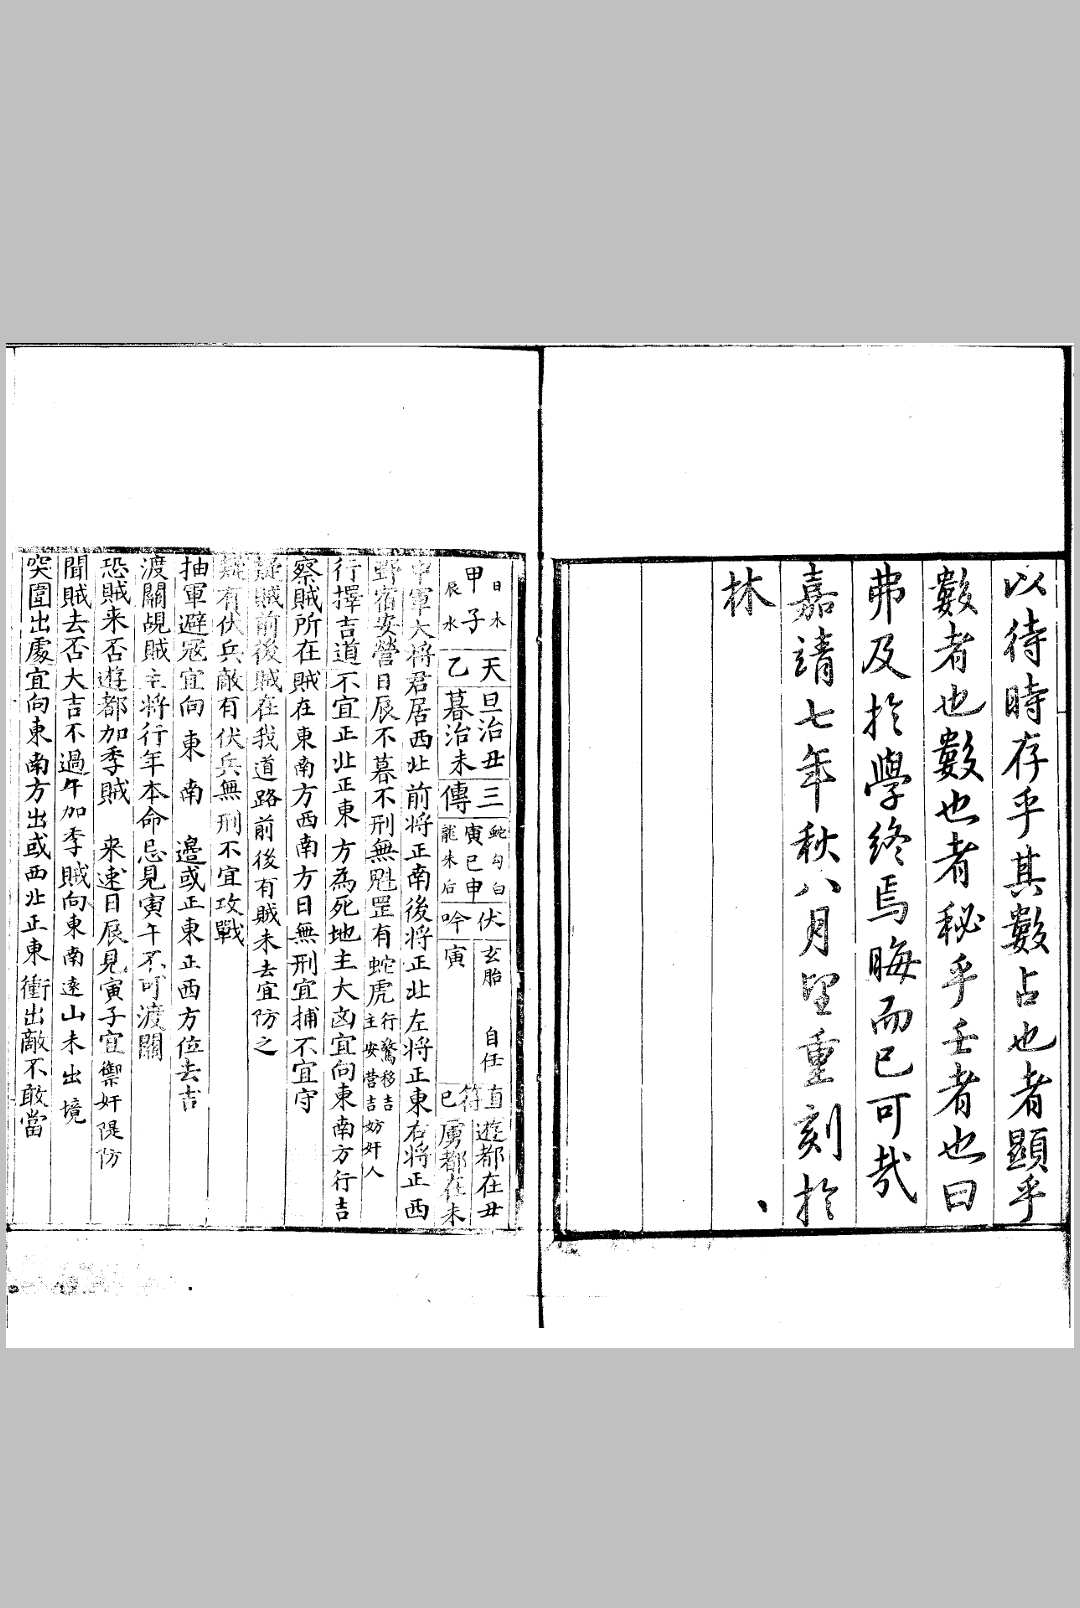 以待時存乎其數占也者顯乎
數者也數也者秘乎壬者也曰
弗及於學終焉晦而已可哉
嘉靖七年秋八月望重刻於
林
甲子 日木 辰水
天乙
旦治丑 暮治未
三傳
蛇勾白 寅巳申 龍朱后
伏吟
玄胎 自任 寅
直符 巳
遊都在丑 虜都在未
中軍大將君居西北前將正南後將正北左將正東右將正西
野宿安營日辰不暮不刑無魁罡有蛇虎行驚移吉 主安营吉 妨奸人
行擇吉道不宜正北正東方為死地主大凶宜向東南方行吉
察賊所在賊在東南方西南方日無刑宜捕不宜守
疑賊前後賊在我道路前後有賊未去宜防之
疑有伏兵敵有伏兵無刑不宜攻戰
抽軍避冦宜向東南邉或正東正西方位去吉
渡關覘賊主將行年本命忌見寅午不可渡關
恐賊来否遊都加季賊来速日辰見寅子宜禦奸隄防
聞賊去否大吉不過午加季賊向東南遠山未出境
突圍出處宜向東南方出或西北正東衝出敵不敢當